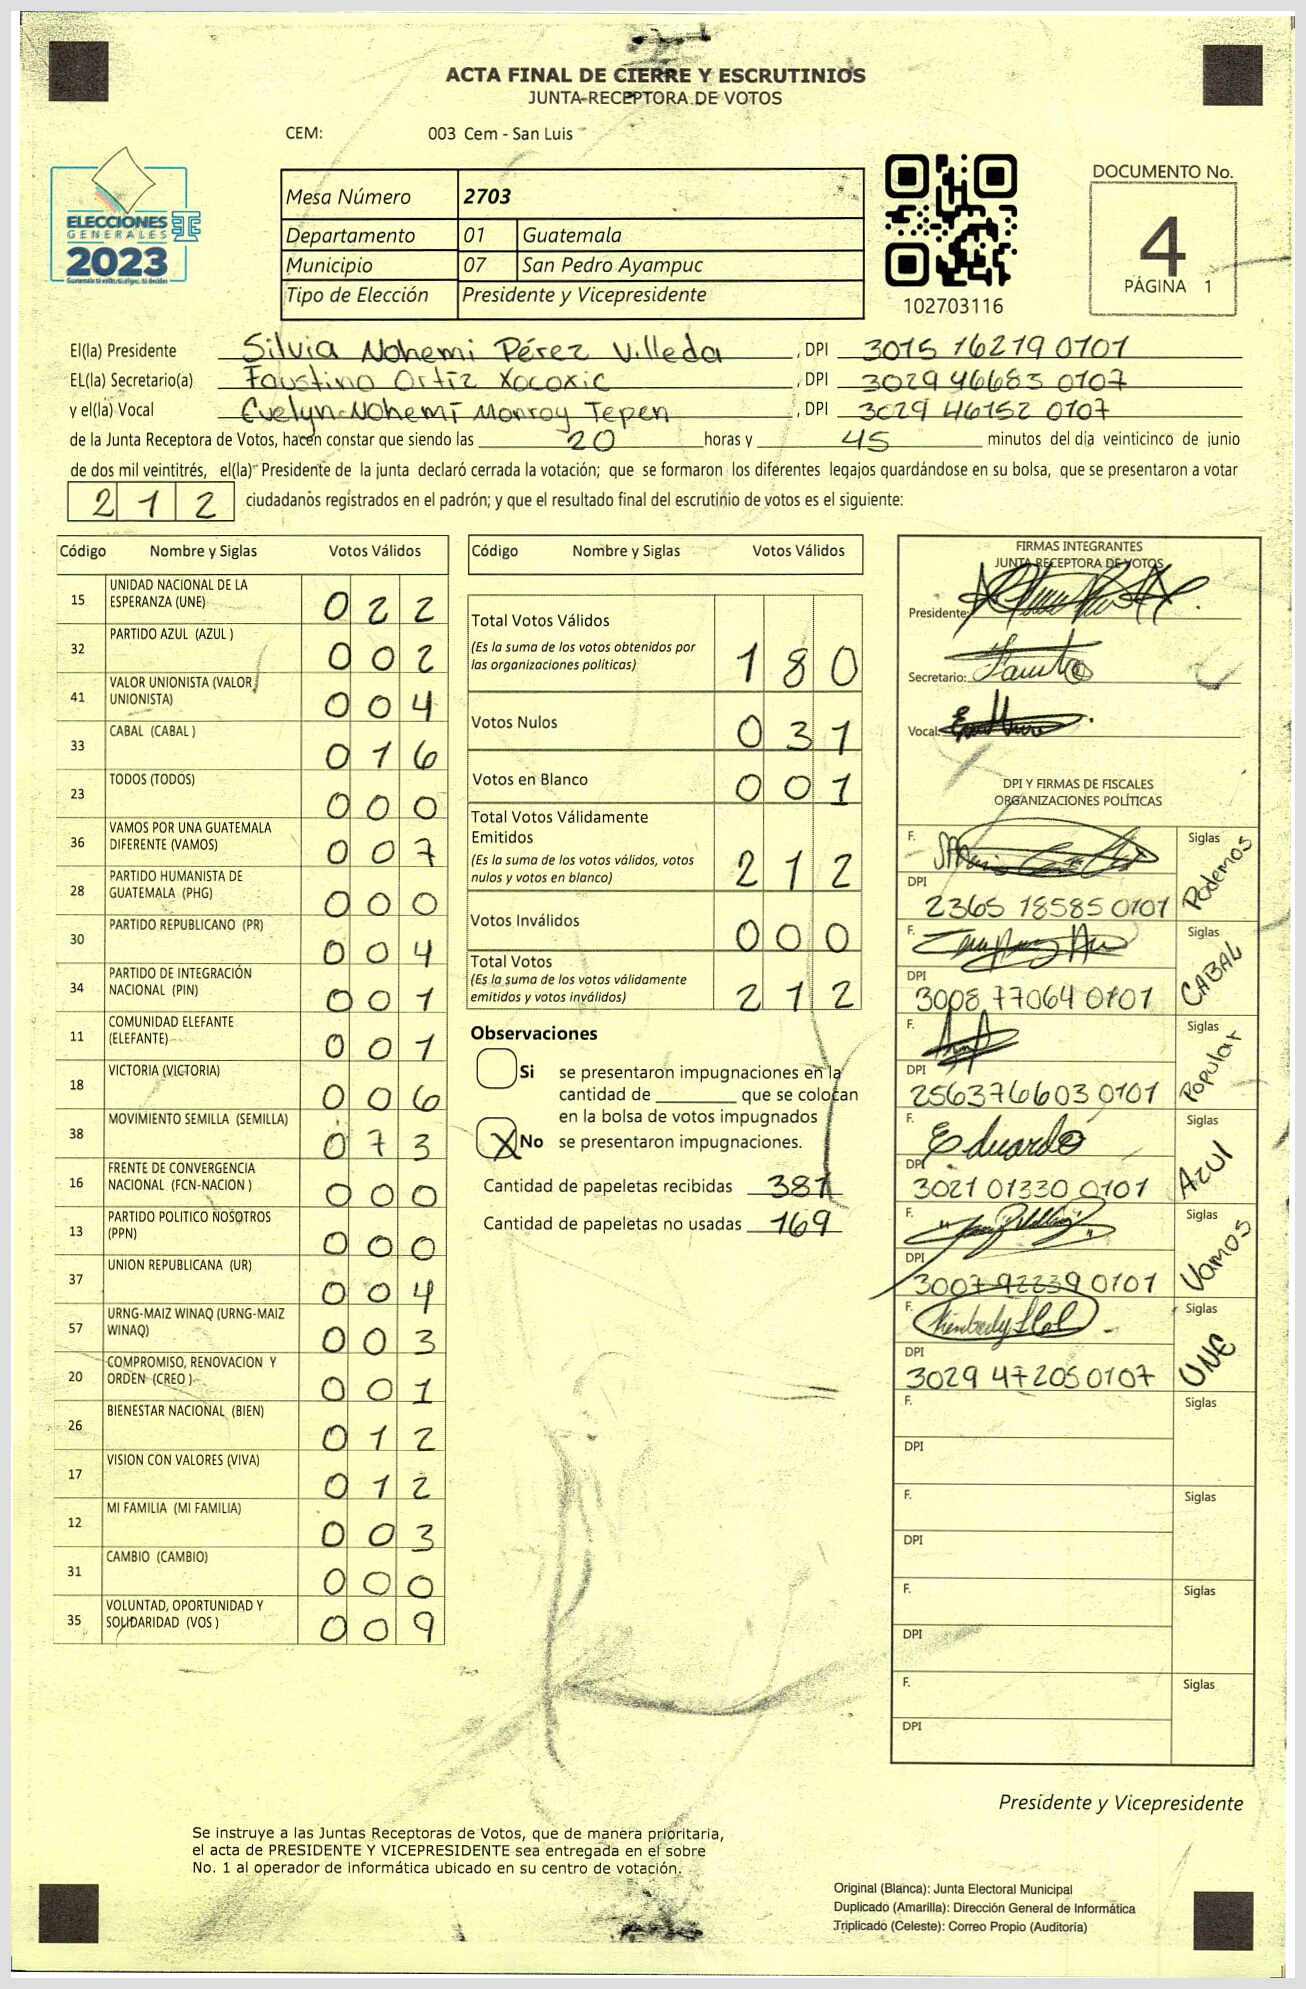 ACTA FINAL DE CIERRE Y ESCRUTINIOS
JUNTA RECEPTORA DE VOTOS
CEM: 003 Cem - San Luis
ELECCIONES
GENERALES
2023
Mesa Número 2703
Departamento 01 Guatemala
Municipio 07 San Pedro Ayampuc
Tipo de Elección Presidente y Vicepresidente
102703116
DOCUMENTO No.
4
PÁGINA 1
El(la) Presidente Silvia Nohemi Pérez Villeda, DPI 3015 16219 0101
EL(la) Secretario(a) Faustino Ortíz Xocoxic, DPI 3029 46683 0107
y el(la) Vocal Evelyn Nohemí Monroy Tepen, DPI 3029 46152 0107
de la Junta Receptora de Votos, hacen constar que siendo las 20 horas y 45 minutos del día veinticinco de junio
de dos mil veintitrés, el(la) Presidente de la junta declaró cerrada la votación; que se formaron los diferentes legajos quardándose en su bolsa, que se presentaron a votar
212 ciudadanos registrados en el padrón; y que el resultado final del escrutinio de votos es el siguiente:
Código Nombre y Siglas Votos Válidos
15 UNIDAD NACIONAL DE LA ESPERANZA (UNE) 022
32 PARTIDO AZUL (AZUL ) 002
41 VALOR UNIONISTA (VALOR UNIONISTA) 004
33 CABAL (CABAL ) 016
23 TODOS (TODOS) 000
36 VAMOS POR UNA GUATEMALA DIFERENTE (VAMOS) 007
28 PARTIDO HUMANISTA DE GUATEMALA (PHG) 000
30 PARTIDO REPUBLICANO (PR) 004
34 PARTIDO DE INTEGRACIÓN NACIONAL (PIN) 001
11 COMUNIDAD ELEFANTE (ELEFANTE) 001
18 VICTORIA (VICTORIA) 006
38 MOVIMIENTO SEMILLA (SEMILLA) 073
16 FRENTE DE CONVERGENCIA NACIONAL (FCN-NACION ) 000
13 PARTIDO POLITICO NOSOTROS (PPN) 000
37 UNION REPUBLICANA (UR) 004
57 URNG-MAIZ WINAQ (URNG-MAIZ WINAQ) 003
20 COMPROMISO, RENOVACION Y ORDEN (CREO ) 001
26 BIENESTAR NACIONAL (BIEN) 012
17 VISION CON VALORES (VIVA) 012
12 MI FAMILIA (MI FAMILIA) 003
31 CAMBIO (CAMBIO) 000
35 VOLUNTAD, OPORTUNIDAD Y SOLIDARIDAD (VOS ) 009
Código Nombre y Siglas Votos Válidos
Total Votos Válidos
(Es la suma de los votos obtenidos por
las organizaciones políticas) 180
Votos Nulos 031
Votos en Blanco 001
Total Votos Válidamente
Emitidos
(Es la suma de los votos válidos, votos
nulos y votos en blanco) 212
Votos Inválidos 000
Total Votos
(Es la suma de los votos válidamente
emitidos y votos inválidos) 212
Observaciones
Si se presentaron impugnaciones en la
cantidad de ________ que se colocan
en la bolsa de votos impugnados
X No se presentaron impugnaciones.
Cantidad de papeletas recibidas 381
Cantidad de papeletas no usadas 169
FIRMAS INTEGRANTES
JUNTA RECEPTORA DE VOTOS
Presidente:
Secretario:
Vocal:
DPI Y FIRMAS DE FISCALES
ORGANIZACIONES POLÍTICAS
F. Siglas Podemos
DPI 2365 18585 0101
F. Siglas CABAL
DPI 3008 77064 0101
F. Siglas Popular
DPI 2563766030101
F. Eduardo Siglas AZUl
DPI 3021 01330 0101
F. Siglas Vamos
DPI 3007 92239 0101
F. Siglas UNE
DPI 3029 47205 0107
F. Siglas
DPI
F. Siglas
DPI
F. Siglas
DPI
F. Siglas
DPI
Presidente y Vicepresidente
Se instruye a las Juntas Receptoras de Votos, que de manera prioritaria,
el acta de PRESIDENTE Y VICEPRESIDENTE sea entregada en el sobre
No. 1 al operador de informática ubicado en su centro de votación.
Original (Blanca): Junta Electoral Municipal
Duplicado (Amarilla): Dirección General de Informática
Triplicado (Celeste): Correo Propio (Auditoría)